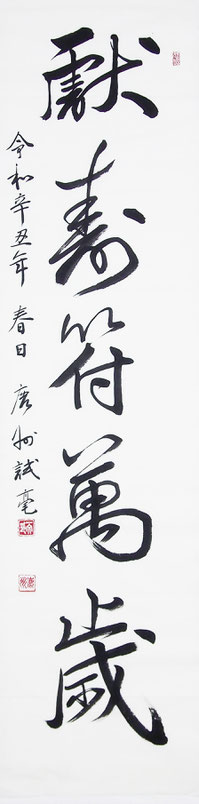 獻壽符萬歲
令和辛丑年 春日 唐州試毫